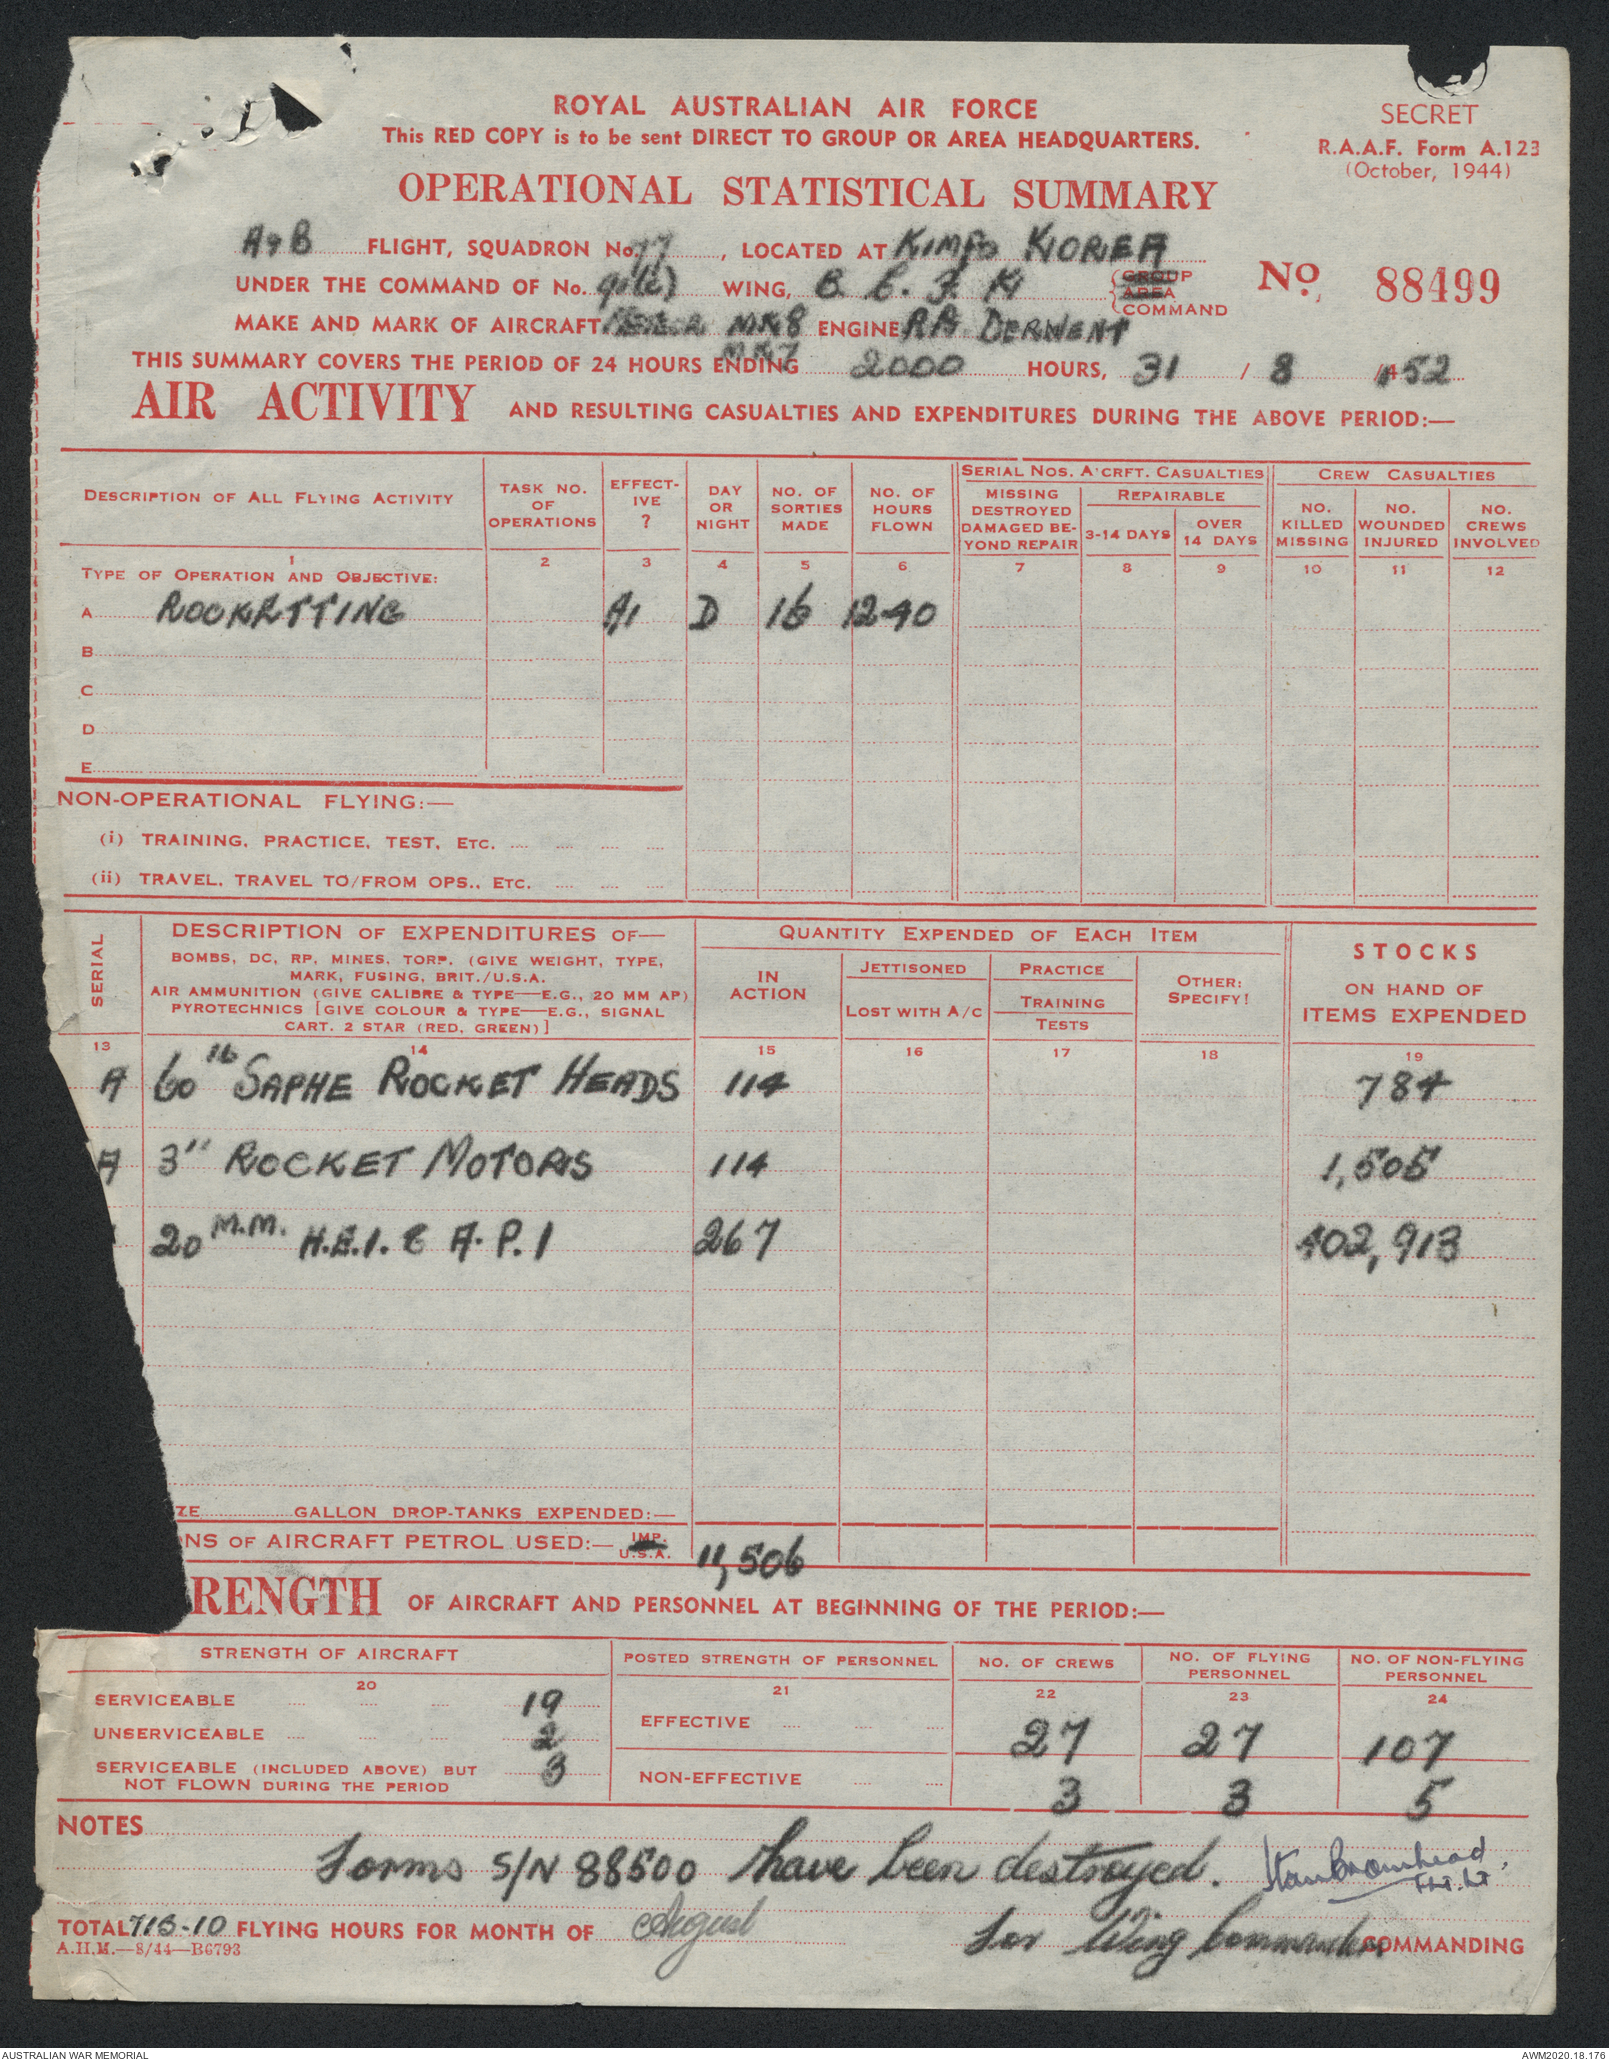 SECRET
R.A.A.F. Form A.123
(October, 1944)
ROYAL AUSTRALIAN AIR FORCE
This RED COPY is to be sent DIRECT TO GROUP OR AREA HEADQUARTERS.
OPERATIONAL STATISTICAL SUMMARY
A & B FLIGHT, SQUADRON No. 77, LOCATED AT KIMPO KOREA
UNDER THE COMMAND OF No. 91(C) WING, B.C.F.K GROUP AREA COMMAND
No. 88499
MAKE AND MARK OF AIRCRAFT MK8 ENGINE RR DERWENT
THIS SUMMARY COVERS THE PERIOD OF 24 HOURS ENDING 2000 HOURS, 31 / 8 / 52
AIR ACTIVITY AND RESULTING CASUALTIES AND EXPENDITURES DURING THE ABOVE PERIOD:—
DESCRIPTION OF ALL FLYING ACTIVITY
TASK NO. OF OPERATIONS
EFFECT-IVE ?
DAY OR NIGHT
NO. OF SORTIES MADE
NO. OF HOURS FLOWN
SERIAL NOS. A'CRFT. CASUALTIES
MISSING DESTROYED DAMAGED BE-YOND REPAIR
REPAIRABLE
3-14 DAYS
OVER 14 DAYS
CREW CASUALTIES
NO. KILLED MISSING
NO. WOUNDED INJURED
NO. CREWS INVOLVED
1 2 3 4 5 6 7 8 9 10 11 12
TYPE OF OPERATION AND OBJECTIVE:
A ROCKETTING A1 D 16 12-40
B
C
D
E
NON-OPERATIONAL FLYING:—
(i) TRAINING, PRACTICE, TEST, ETC. .... .... .... ....
(ii) TRAVEL, TRAVEL TO/FROM OPS., ETC. .... .... ....
SERIAL
DESCRIPTION OF EXPENDITURES OF—
BOMBS, DC, RP, MINES, TORP. (GIVE WEIGHT, TYPE,
MARK, FUSING, BRIT./U.S.A.
AIR AMMUNITION (GIVE CALIBRE & TYPE—E.G., 20 MM AP)
PYROTECHNICS [GIVE COLOUR & TYPE—E.G., SIGNAL
CART. 2 STAR (RED, GREEN)]
QUANTITY EXPENDED OF EACH ITEM
IN ACTION
JETTISONED
LOST WITH A/C
PRACTICE
TRAINING
TESTS
OTHER: SPECIFY!
STOCKS
ON HAND OF
ITEMS EXPENDED
13 14 15 16 17 18 19
A 60 lb SAPHE ROCKET HEADS 114 784
A 3" ROCKET MOTORS 114 1,505
20 M.M. H.E.I. & A.P.I 267 402,913
ZE GALLON DROP-TANKS EXPENDED:—
NS OF AIRCRAFT PETROL USED:— IMP. U.S.A. 11,506
RENGTH OF AIRCRAFT AND PERSONNEL AT BEGINNING OF THE PERIOD:—
STRENGTH OF AIRCRAFT
POSTED STRENGTH OF PERSONNEL
NO. OF CREWS
NO. OF FLYING PERSONNEL
NO. OF NON-FLYING PERSONNEL
20 21 22 23 24
SERVICEABLE .... .... .... 19
UNSERVICEABLE .... .... .... 2
SERVICEABLE (INCLUDED ABOVE) BUT
NOT FLOWN DURING THE PERIOD 3
EFFECTIVE .... .... .... 27 27 107
NON-EFFECTIVE .... .... 3 3 5
NOTES
Forms S/N 88500 have been destroyed. Stan Bromhead, Flt.Lt
TOTAL 713-10 FLYING HOURS FOR MONTH OF August
for Wing Commander COMMANDING
A.H.M.—8/44—B6793
AUSTRALIAN WAR MEMORIAL
AWM2020.18.176